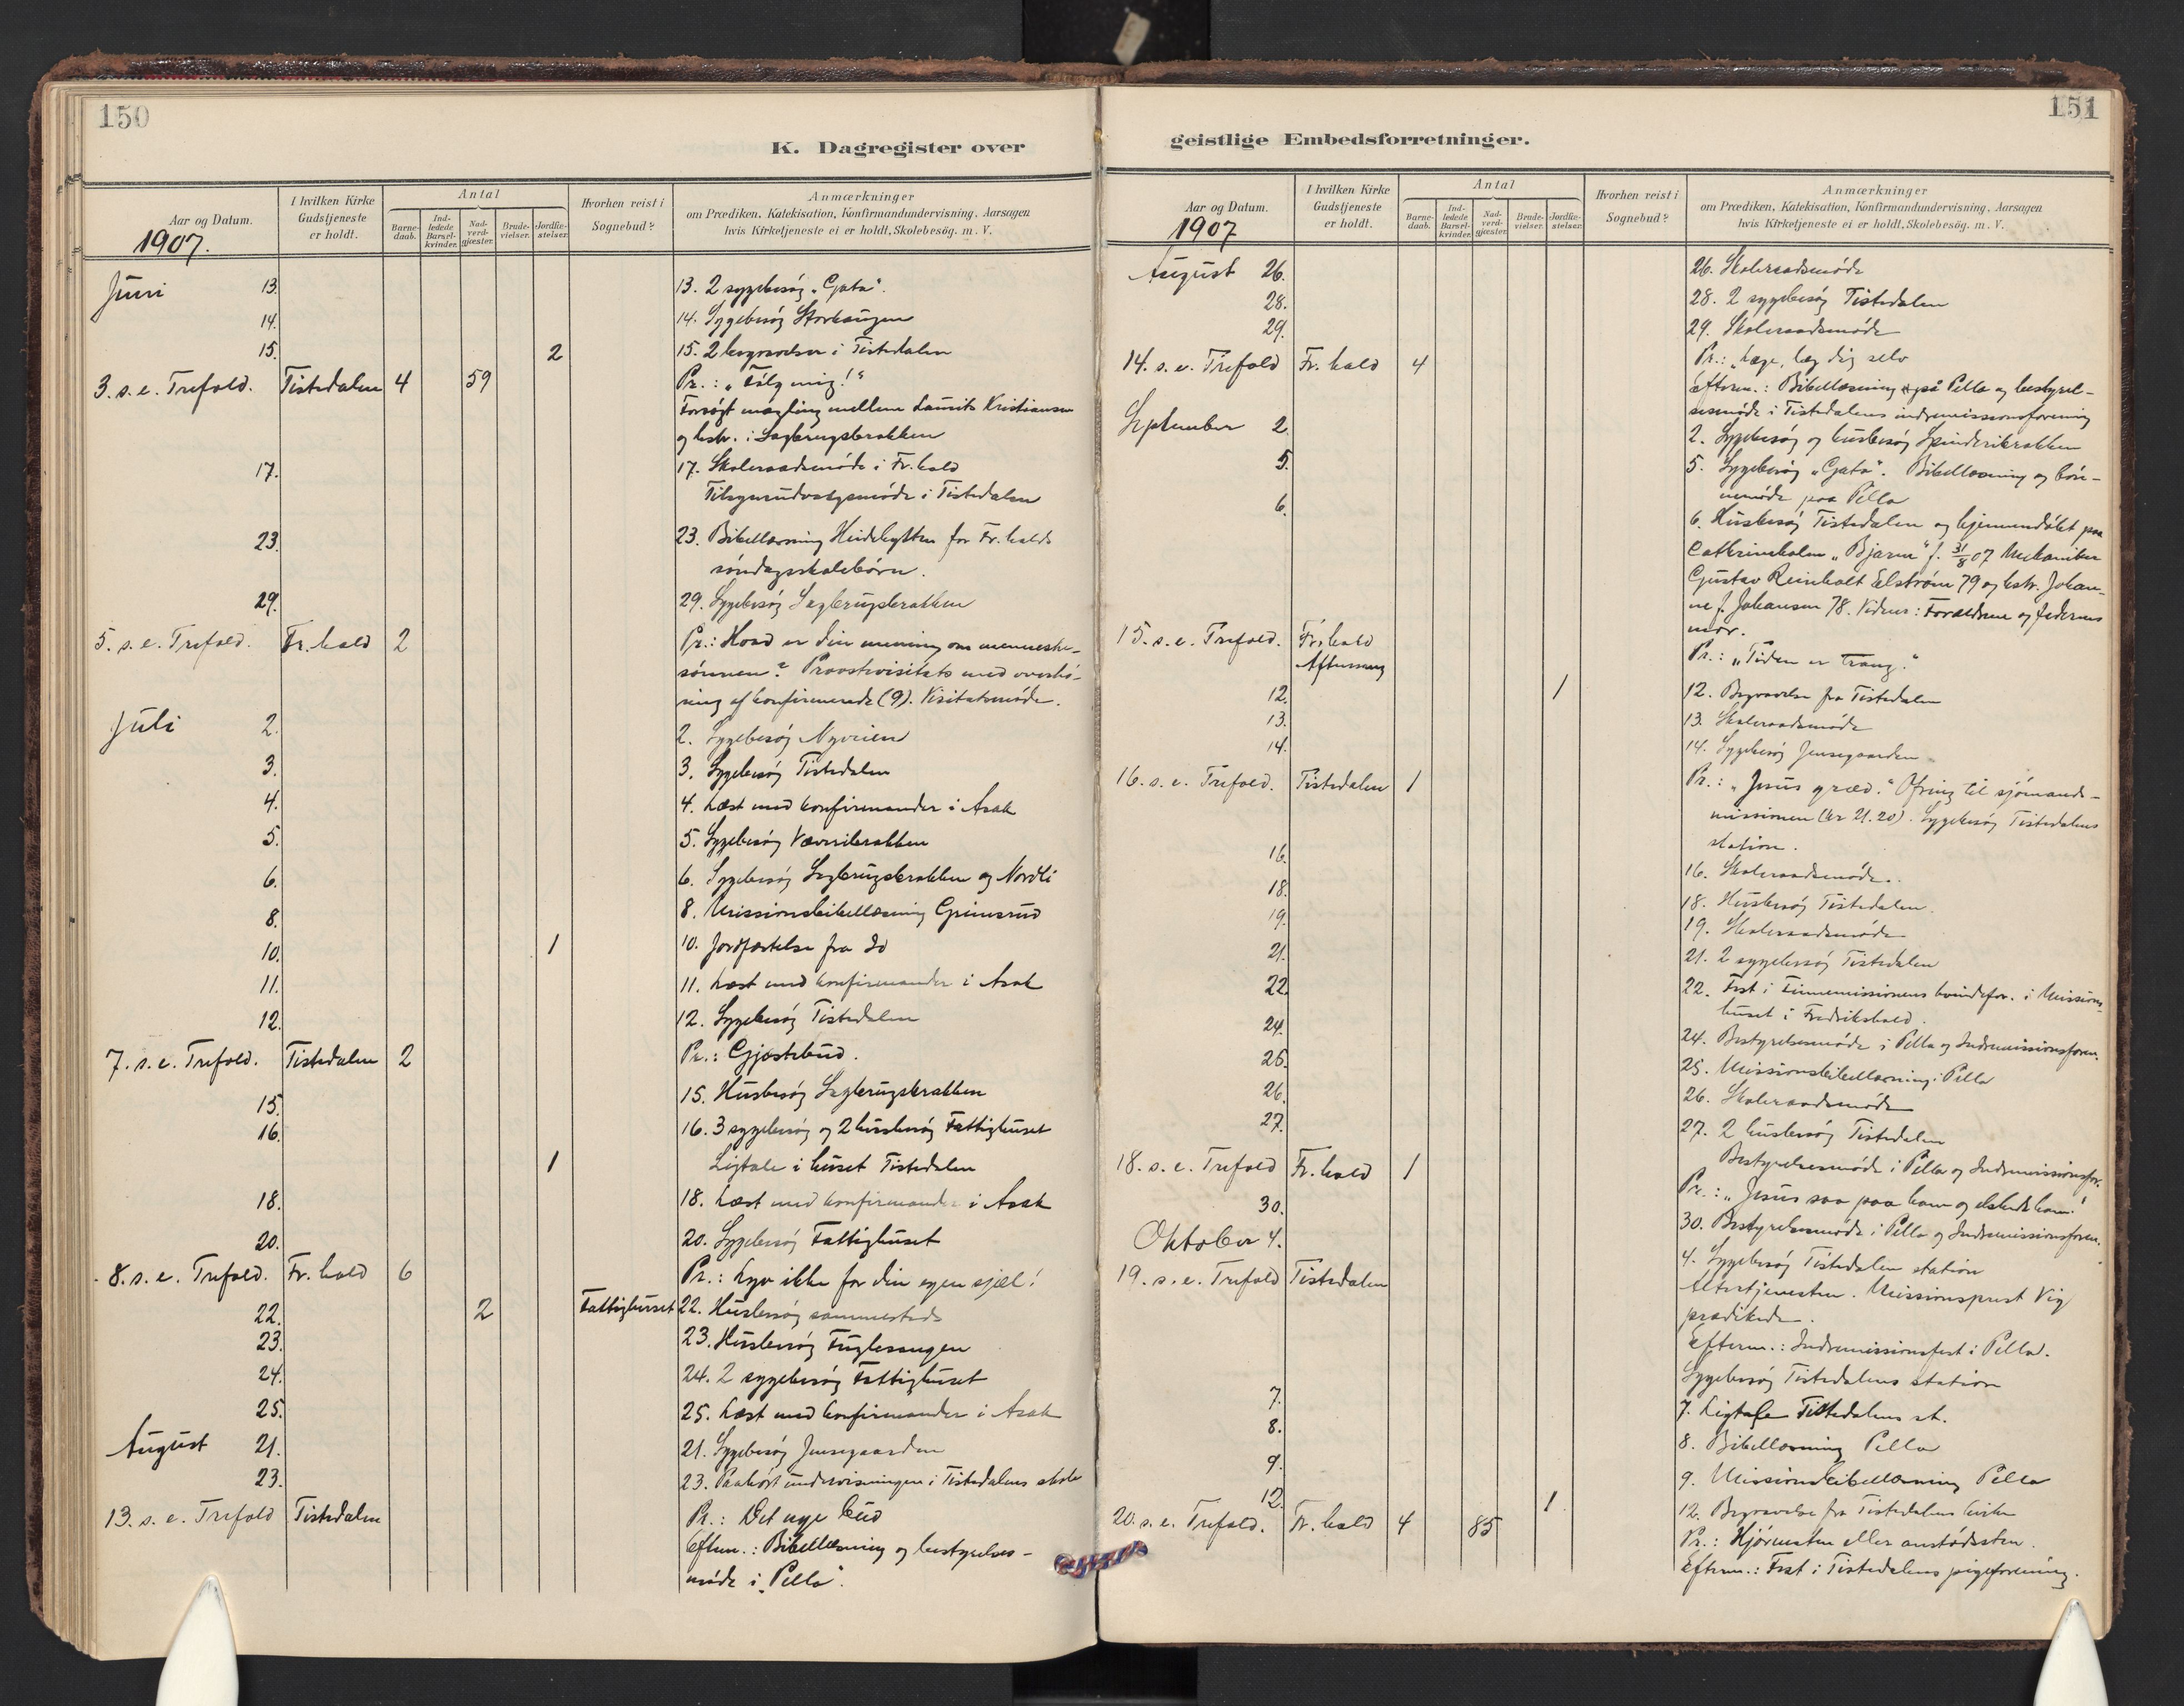 150
K. Dagregister over
Aar og Datum.
1907.
I hvilken Kirke Gudstjeneste er holdt.
Antal
Barne-daab.
Ind-ledede Barsel-kvinder.
Nad-verd-gjæster.
Brude-vielser.
Jordfæ-stelser.
Hvorhen reist i Sognebud?
Anmærkninger
om Prædiken, Katekisation, Konfirmandundervisning, Aarsagen
hvis Kirketjeneste ei er holdt, Skolebesög. m. V.
Juni 13. 13. 2 sygebesøg "Gata".
14. 14. Sygebesøg Storhaugen
15. 2 15. 2 begravelser i Tistedalen
3. s. e. Trefold. Tistedalen 4 59 Pr.: "Følg mig!"
Forsøgt mægling mellem Laurits Kristiansen
og hstr. i Sagbrugsbrakken
17. 17. Skoleraadsmøde i Fr.hald
Tilsynsudvalgsmøde i Tistedalen
23. 23. Bibellæsning Heidehytten for Fr.halds
søndagsskolebørn.
29. 29. Sygebesøg Sagbrugsbrakken
5. s. e. Trefold. Fr. hald 2 Pr.: Hvad er din mening om menneske-
sønnen? Provstevisitats med overhø-
ring af konfirmerede (9). Visitatsmøde.
Juli 2. 2. Sygebesøg Nyveien
3. 3. Sygebesøg Tistedalen
4. 4. Læst med konfirmander i Asak
5. 5. Sygebesøg Væveribrakken
6. 6. Sygebesøg Sagbrugsbrakken og Nordli
8. 8. Missionsbibellæsning Grimsrud
10. 1 10. Jordfæstelse fra Id
11. 11. Læst med konfirmander i Asak
12. 12. Sygebesøg Tistedalen
7. s. e. Trefold. Tistedalen 2 Pr.: Gjæstebud.
15. 15. Husbesøg Sagbrugsbrakken
16. 16. 3 sygebesøg og 2 husbesøg Fattighuset
1 Ligtale i huset Tistedalen
18. 18. Læst med konfirmander i Asak
20. 20. Sygebesøg Fattighuset
8. s. e. Trefold. Fr. hald 6 Pr.: Lyv ikke for din egen sjæl!
22. 2 Fattighuset 22. Husbesøg sammesteds
23. 23. Husbesøg Fuglesangen
24. 24. 2 sygebesøg Fattighuset
25. 25. Læst med konfirmander i Asak
August 21. 21. Sygebesøg Jensegaarden
23. 23. Paahørt undervisningen i Tistedalens skole
13. s. e. Trefold Tistedalen Pr.: Det nye bud
Efterm.: Bibellæsning og bestyrelses-
møde i "Pella".
151
geistlige Embedsforretninger.
Aar og Datum.
1907
I hvilken Kirke Gudstjeneste er holdt.
Antal
Barne-daab.
Ind-ledede Barsel-kvinder.
Nad-verd-gjæster.
Brude-vielser.
Jordfæ-stelser.
Hvorhen reist i Sognebud?
Anmærkninger
om Prædiken, Katekisation, Konfirmandundervisning, Aarsagen
hvis Kirketjeneste ei er holdt, Skolebesög. m. V.
August 26. 26. Skoleraadsmøde
28. 28. 2 sygebesøg Tistedalen
29. 29. Skoleraadsmøde
14. s. e. Trefold Fr. hald 4 Pr.: "Læge, læg dig selv
Efterm.: Bibellæsning på Pella og bestyrel-
sesmøde i Tistedalens indremissionsforening
September 2. 2. Sygebesøg og husbesøg Spinderibrakken
5. 5. Sygebesøg "Gata". Bibellæsning og bøn-
nemøde paa Pella
6. 6. Husbesøg Tistedalen og hjemmedøbt paa
Cathrineholm "Bjarne" f. 31/8 07 Mekaniker
Gustav Reinholt Elstrøm 79 og hstr. Johan-
ne f. Johansen 78. Vidner: Forældrene og faderens
mor.
15. s. e. Trefold. Fr. hald Aftensang Pr.: "Tiden er trang."
12. 1 12. Begravelse fra Tistedalen
13. 13. Skoleraadsmøde
14. 14. Sygebesøg Jensegaarden
16. s. e. Trefold. Tistedalen 1 Pr.: "Jesus græd." Ofring til sjømands-
missionen (kr 21.20). Sygebesøg Tistedalens
station.
16. 16. Skoleraadsmøde.
18. 18. Husbesøg Tistedalen.
19. 19. Skoleraadsmøde
21. 21. 2 sygebesøg Tistedalen
22. 22. Fest i Finnemissionens kvindefor. i Missions-
huset i Fredrikshald.
24. 24. Bestyrelsesmøde i Pella og Indremissionsforen.
25. 25. Missionsbibellæsning i Pella
26. 26. Skoleraadsmøde
27. 27. 2 husbesøg Tistedalen
Bestyrelsesmøde i Pella og Indremissionsfor.
18. s. e. Trefold Fr. hald 1 Pr.: "Jesus saa paa ham og elskede ham!"
30. 30. Bestyrelsesmøde i Pella og Indremissionsforen.
Oktober 4. 4. Sygebesøg Tistedalen station
19. s. e. Trefold Tistedalen Altertjenesten. Missionsprest Vig
prædikede.
Efterm.: Indremissionsfest i Pella.
Sygebesøg Tistedalens station
7. 7. Ligtale Tistedalens st.
8. 8. Bibellæsning Pella
9. 9. Missionsbibellæsning Pella
12. 1. 12. Begravelse fra Tistedalens kirke
20. s. e. Trefold. Fr. hald 4 85 Pr.: Hjørnesten eller anstødssten.
Efterm.: Fest i Tistedalens pigeforening.